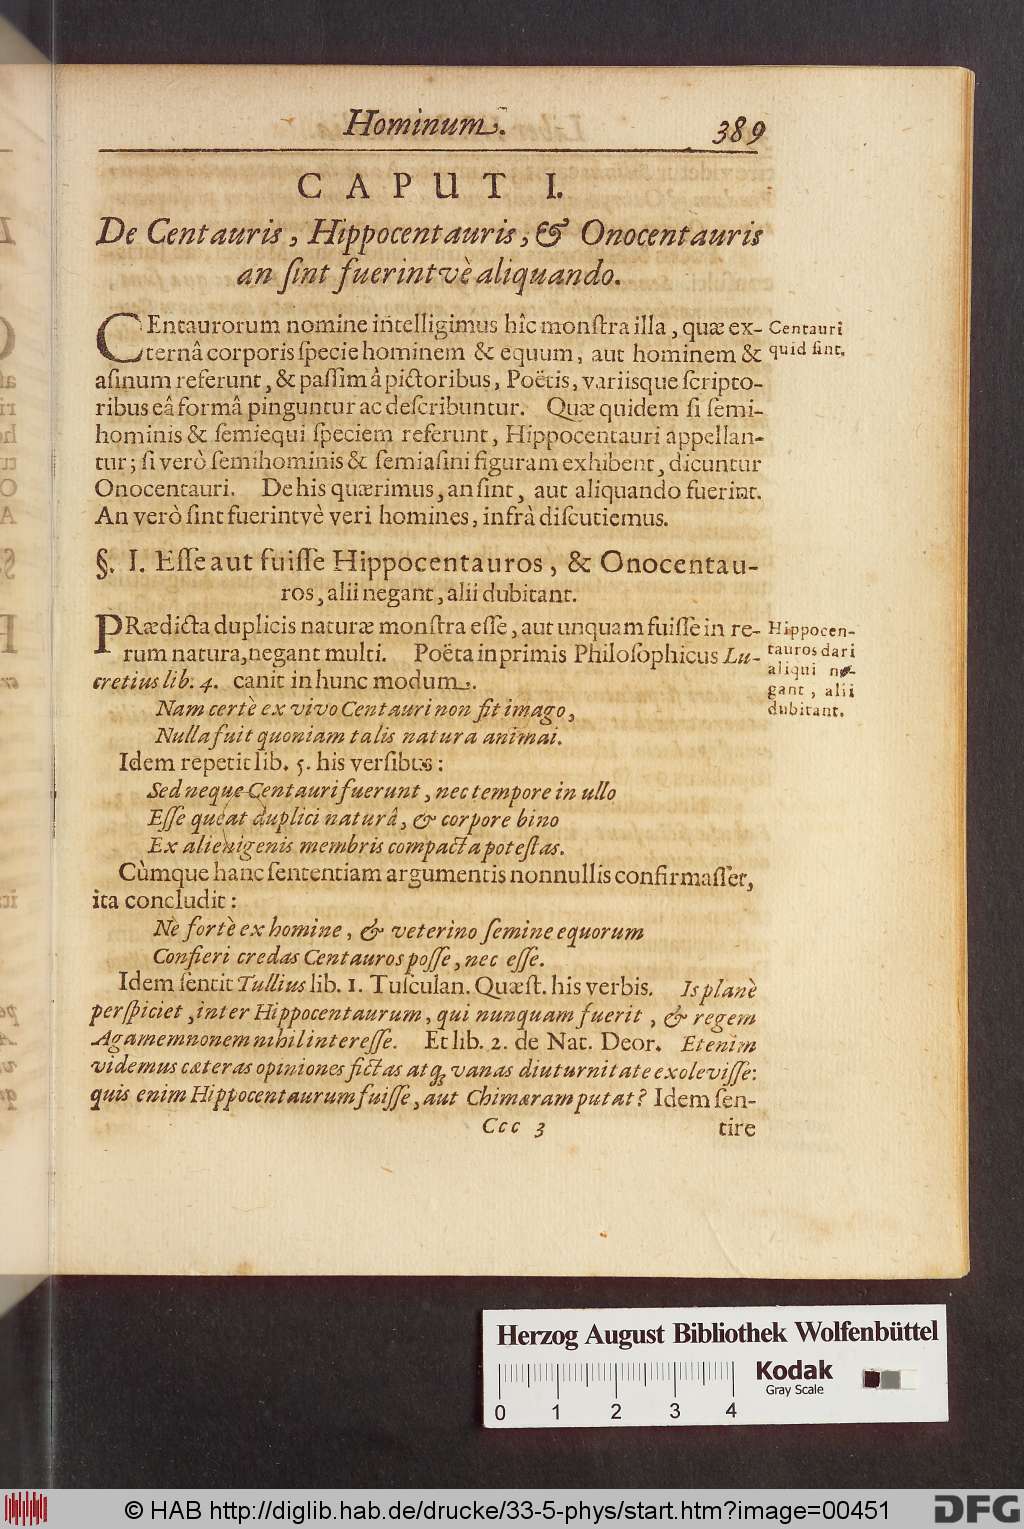 Hominum.
389
CAPUT I.
De Centauris, Hippocentauris, & Onocentauris
an ſint fuerintvè aliquando.
CEntaurorum nomine intelligimus hîc monſtra illa, quæ ex-
ternâ corporis ſpecie hominem & equum, aut hominem &
aſinum referunt, & paſſim à pictoribus, Poëtis, variisque ſcripto-
ribus eâ formâ pinguntur ac deſcribuntur. Quæ quidem ſi ſemi-
hominis & ſemiequi ſpeciem referunt, Hippocentauri appellan-
tur; ſi verò ſemihominis & ſemiaſini figuram exhibent, dicuntur
Onocentauri. De his quærimus, an ſint, aut aliquando fuerint.
An verò ſint fuerintvè veri homines, infrà diſcutiemus.
Centauri
quid ſint.
§. I. Eſſe aut fuiſſe Hippocentauros, & Onocentau-
ros, alii negant, alii dubitant.
PRædicta duplicis naturæ monſtra eſſe, aut unquam fuiſſe in re-
rum natura, negant multi. Poëta inprimis Philoſophicus Lu-
cretius lib. 4. canit in hunc modum.
Nam certè ex vivo Centauri non fit imago,
Nulla fuit quoniam talis natura animai.
Idem repetit lib. 5. his verſibus:
Sed neque Centauri fuerunt, nec tempore in ullo
Eſſe queat duplici naturâ, & corpore bino
Ex alienigenis membris compacta poteſtas.
Cùmque hanc ſententiam argumentis nonnullis confirmaſſet,
ita concludit:
Nè fortè ex homine, & veterino ſemine equorum
Confieri credas Centauros poſſe, nec eſſe.
Idem ſentit Tullius lib. 1. Tuſculan. Quæſt. his verbis. Is planè
perſpiciet, inter Hippocentaurum, qui nunquam fuerit, & regem
Agamemnonem nihil intereſſe. Et lib. 2. de Nat. Deor. Etenim
videmus cæteras opiniones fictas atq; vanas diuturnitate exoleviſſe:
quis enim Hippocentaurum fuiſſe, aut Chimæram putat? Idem ſen-
Hippocen-
tauros dari
aliqui ne-
gant, alii
dubitant.
Ccc 3
tire
Herzog August Bibliothek Wolfenbüttel
Kodak
Gray Scale
0 1 2 3 4
© HAB http://diglib.hab.de/drucke/33-5-phys/start.htm?image=00451
DFG